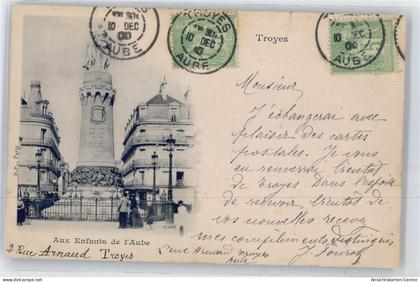 TROYES
10 DEC
AUBE
TROYES
10 DEC
00
AUBE
Troyes
Monsieur
J'échangerai avec
plaisir des cartes
postales. Je vous
en renverrai bientôt
de Troyes. Dans l'espoir
de recevoir bientôt de
vos nouvelles recevez
mes compliments distingués
Aux Enfants de l'Aube
2 Rue Arnaud Troyes
2 rue Arnaud Troyes
Aube
Ansichtskarten-Center